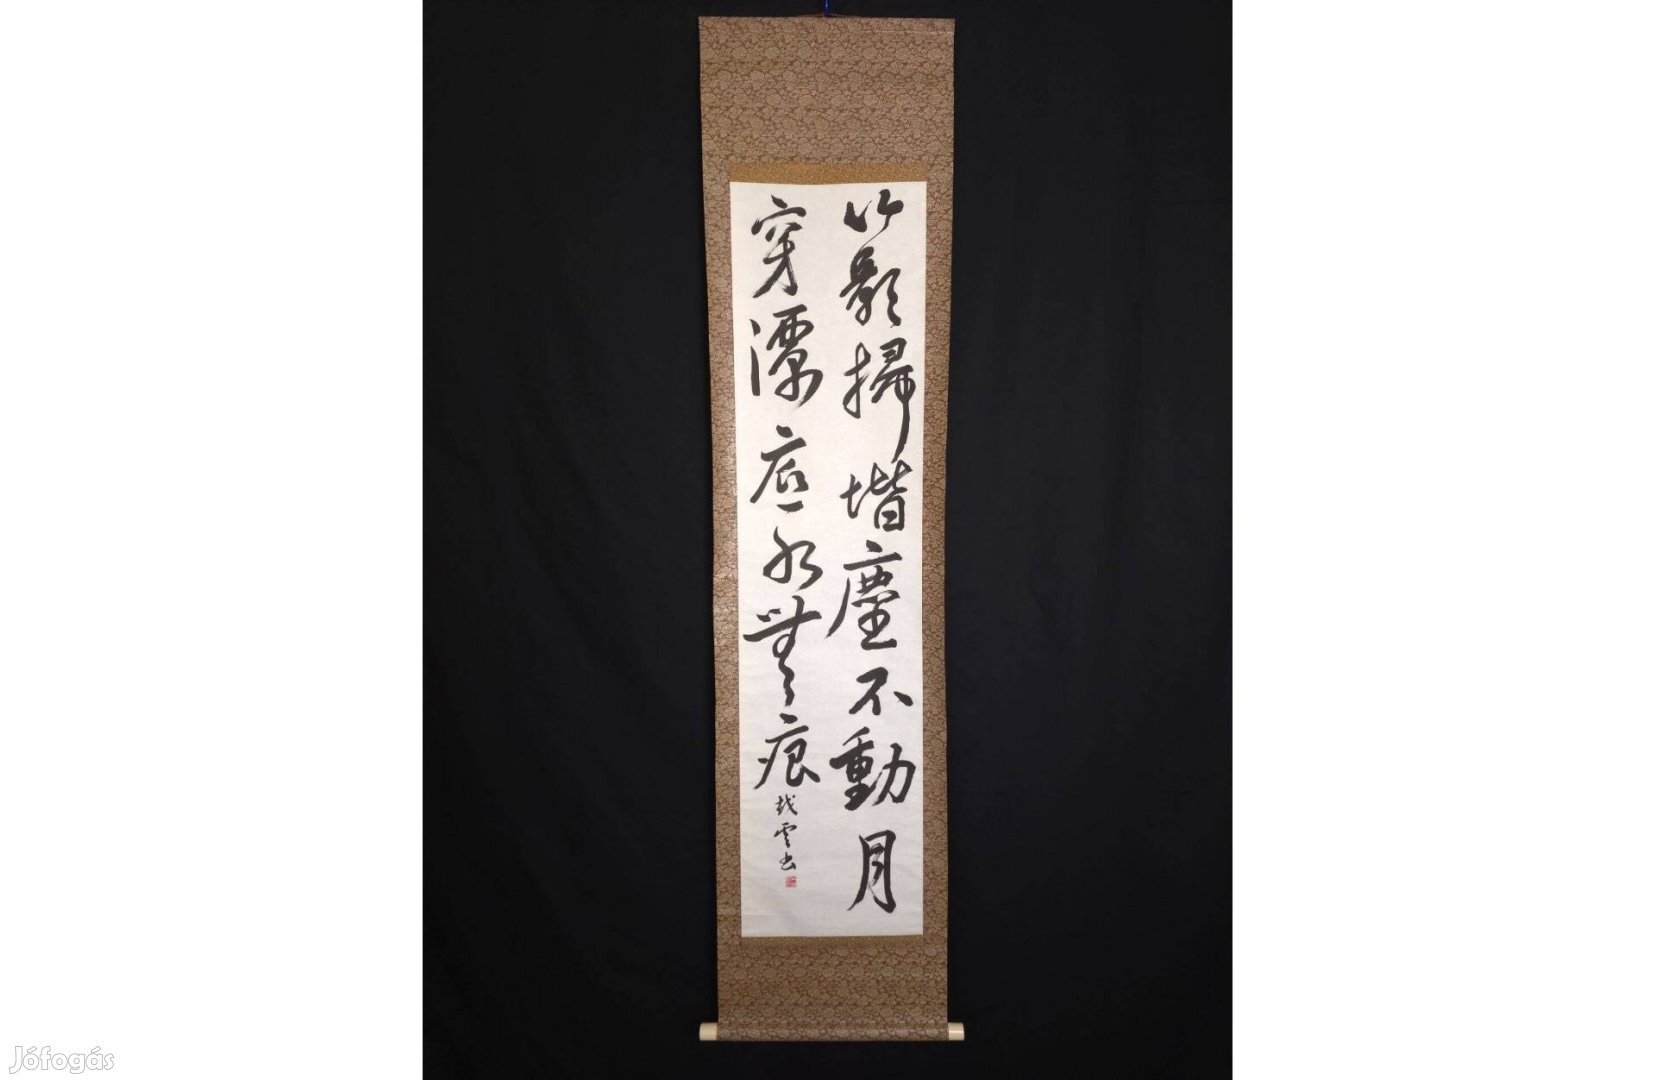 竹影掃堦塵不動月
穿潭底水無痕
雲書
Jófogás